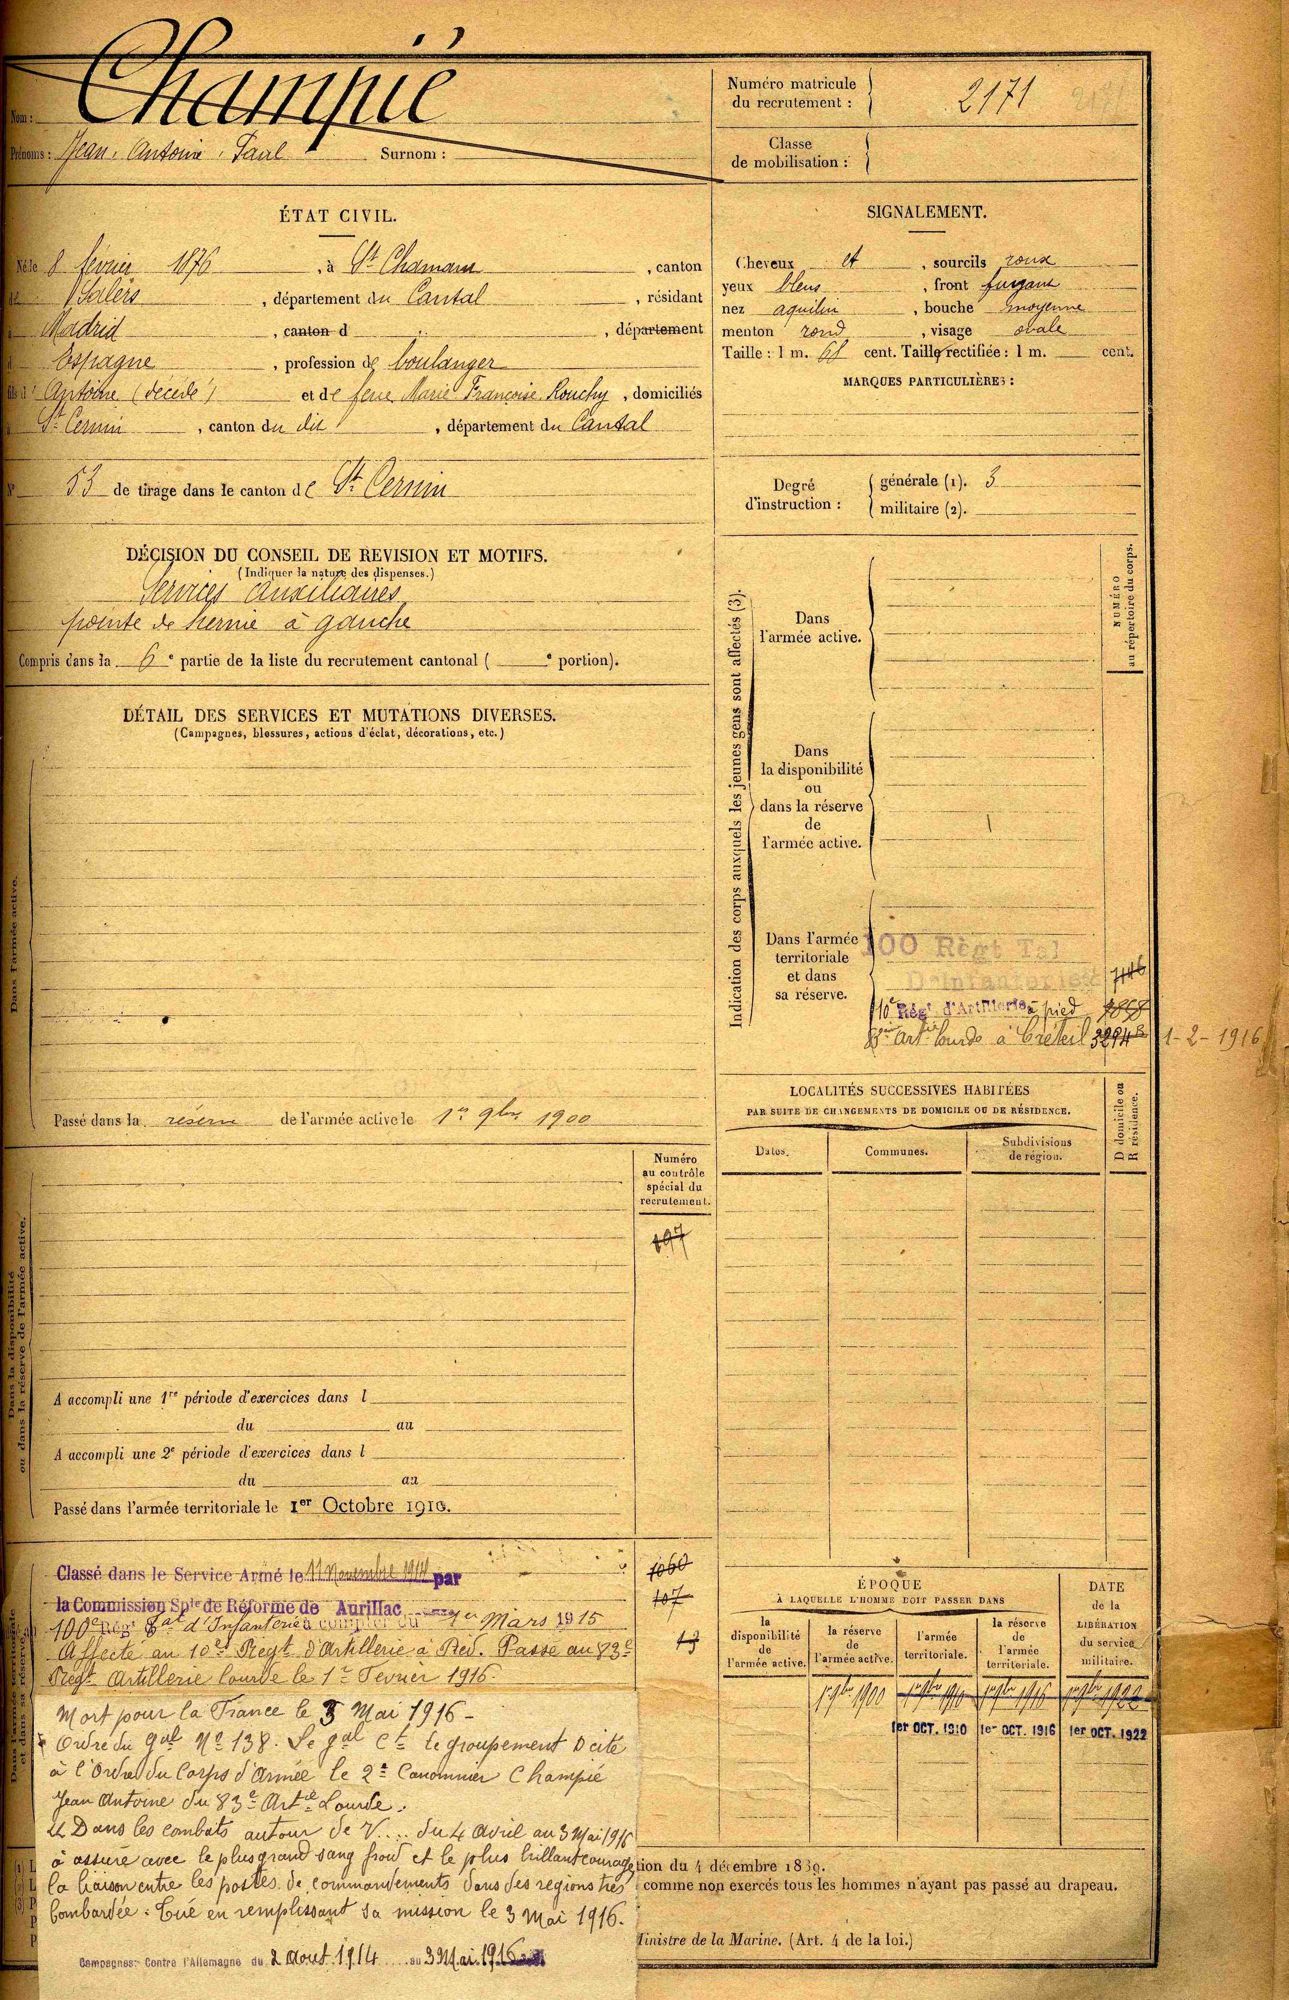 Nom : Champié
Prénoms : Jean, Antoine, Paul Surnom :
Numéro matricule
du recrutement : 2171
Classe
de mobilisation :
ÉTAT CIVIL.
Né le 8 février 1876, à St Chamant, canton
de Salers, département du Cantal, résidant
à Madrid, canton d , département
d Espagne, profession de boulanger
fils d'Antoine (décédé) et de feue Marie Françoise Rouchy, domiciliés
à St Cernin, canton du dit, département du Cantal
N° 53 de tirage dans le canton de St Cernin
SIGNALEMENT.
Cheveux et , sourcils roux
yeux bleus , front fuyant
nez aquilin , bouche moyenne
menton rond , visage ovale
Taille : 1 m. 68 cent. Taille rectifiée : 1 m. cent.
MARQUES PARTICULIÈRES :
Degré
d'instruction :
générale (1). 3
militaire (2).
DÉCISION DU CONSEIL DE REVISION ET MOTIFS.
(Indiquer la nature des dispenses.)
Services auxiliaires
pointe de hernie à gauche
Compris dans la 6e partie de la liste du recrutement cantonal ( e portion).
DÉTAIL DES SERVICES ET MUTATIONS DIVERSES.
(Campagnes, blessures, actions d'éclat, décorations, etc.)
Dans l'armée active.
Passé dans la réserve de l'armée active le 1er 9bre 1900
Indication des corps auxquels les jeunes gens sont affectés (3).
NUMÉRO
au répertoire du corps.
Dans
l'armée active.
Dans
la disponibilité
ou
dans la réserve
de
l'armée active.
Dans l'armée
territoriale
et dans
sa réserve.
100 Régt Tal
D'Infanterie
10e Régt d'Artillerie à pied
83e Artie Lourde à Créteil 1-2-1916
LOCALITÉS SUCCESSIVES HABITÉES
PAR SUITE DE CHANGEMENTS DE DOMICILE OU DE RÉSIDENCE.
Dates. Communes. Subdivisions
de région.
D domicile ou
R résidence.
Dans la disponibilité
ou dans la réserve de l'armée active.
Numéro
au contrôle
spécial du
recrutement.
197
A accompli une 1re période d'exercices dans l
du au
A accompli une 2e période d'exercices dans l
du au
Passé dans l'armée territoriale le 1er Octobre 1910.
Dans l'armée territoriale
et dans sa réserve.
Classé dans le Service Armé le 11 Novembre 1914 par
la Commission Sple de Réforme de Aurillac
100e Régt Tal d'Infanterie à compter du 1er Mars 1915
Affecté au 10e Régt d'Artillerie à Pied. Passé au 83e
Régt Artillerie Lourde le 1er Fevrier 1916.
1060
107
13
Mort pour la France le 3 Mai 1916 -
Ordre du gal No 138. Le gal Ct le groupement D cite
à l'Ordre du Corps d'Armée le 2e Canonnier Champié
Jean Antoine du 83e Artie Lourde.
« Dans les combats autour de V.... du 4 Avril au 3 Mai 1916
à assuré avec le plus grand sang froid et le plus brillant courage
la liaison entre les postes de commandements dans des régions très
bombardée. Tué en remplissant sa mission le 3 Mai 1916.
Campagnes: Contre l'Allemagne du 2 Août 1914 au 3 Mai 1916
ÉPOQUE
À LAQUELLE L'HOMME DOIT PASSER DANS
la
disponibilité
de
l'armée active.
la réserve
de
l'armée active.
l'armée
territoriale.
la réserve
de
l'armée
territoriale.
DATE
de la
LIBÉRATION
du service
militaire.
1er 9bre 1900 1er 9bre 1910 1er 9bre 1916 1er 9bre 1922
1er OCT. 1910 1er OCT. 1916 1er OCT. 1922
tion du 4 décembre 1889.
comme non exercés tous les hommes n'ayant pas passé au drapeau.
Ministre de la Marine. (Art. 4 de la loi.)